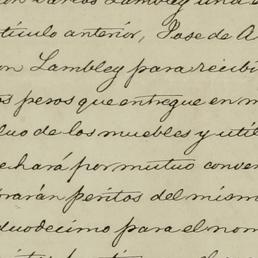 Lambley una
tículo anterior, Pase de A
on Lambley para recibi
os pesos que entregue en m
luo de los muebles y utíl
e hará por mutuo conven
brarán peritos del mismo
duodécimo para el nom